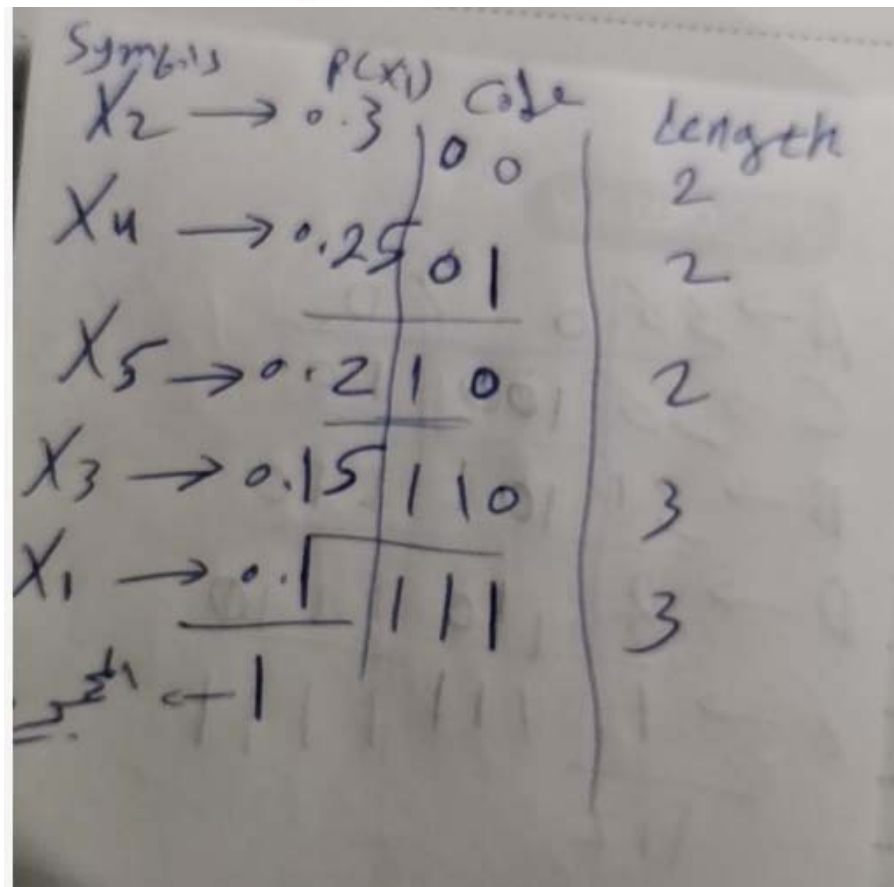 Symbols P(X1) Code Length
X2 → 0.3 0 0 2
X4 → 0.25 0 1 2
X5 → 0.2 1 0 2
X3 → 0.15 1 1 0 3
X1 → 0.1 1 1 1 3
← 1